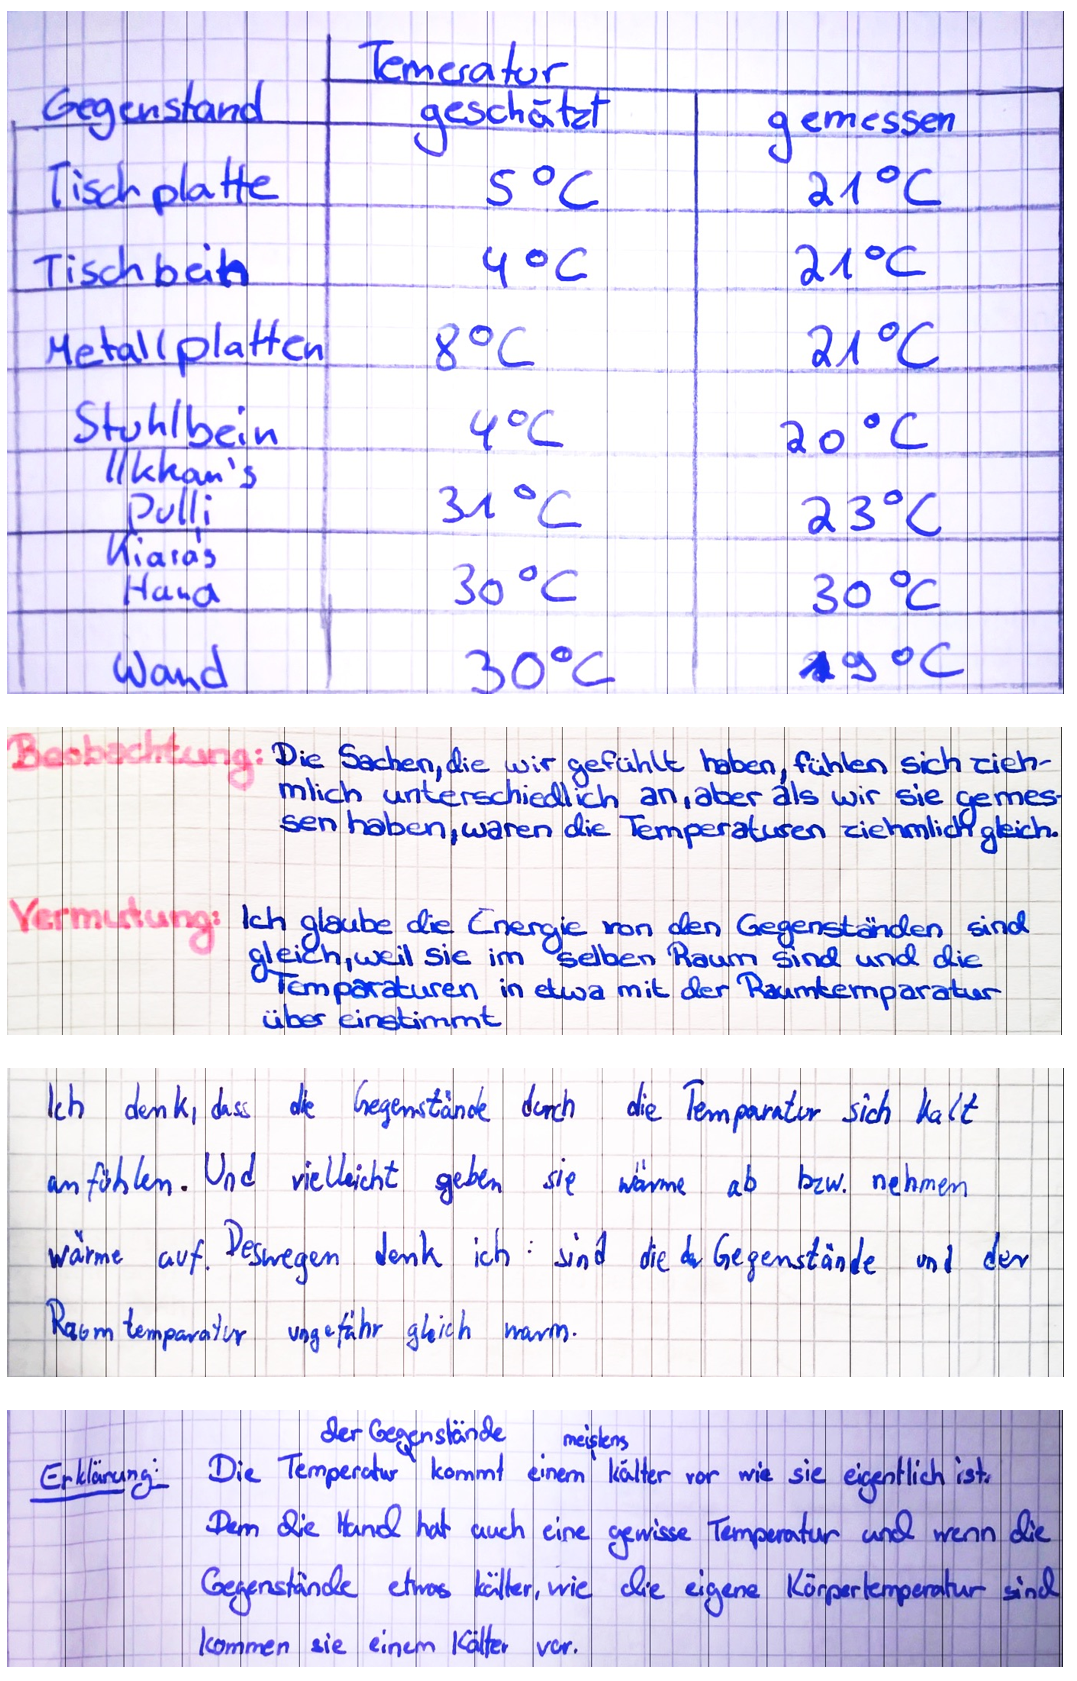 Temeratur
Gegenstand geschätzt gemessen
Tischplatte 5°C 21°C
Tischbein 4°C 21°C
Metallplatten 8°C 21°C
Stuhlbein 4°C 20°C
Ilkhan's
Pulli 31°C 23°C
Kiara's
Hand 30°C 30°C
Wand 30°C 19°C
Beobachtung: Die Sachen, die wir gefühlt haben, fühlen sich zieh-
mlich unterschiedlich an, aber als wir sie gemes-
sen haben, waren die Temperaturen ziehmlich gleich.
Vermutung: Ich glaube die Energie von den Gegenständen sind
gleich, weil sie im selben Raum sind und die
Temparaturen in etwa mit der Raumtemparatur
über einstimmt
Ich denk, dass die Gegenstände durch die Temparatur sich kalt
anfühlen. Und vielleicht geben sie wärme ab bzw. nehmen
wärme auf. Deswegen denk ich: sind die Gegenstände und der
Raumtemparatur ungefähr gleich warm.
der Gegenstände meistens
Erklärung: Die Temperatur kommt einem kälter vor wie sie eigentlich ist.
Denn die Hand hat auch eine gewisse Temperatur und wenn die
Gegenstände etwas kälter, wie die eigene Körpertemperatur sind
kommen sie einem Kälter vor.